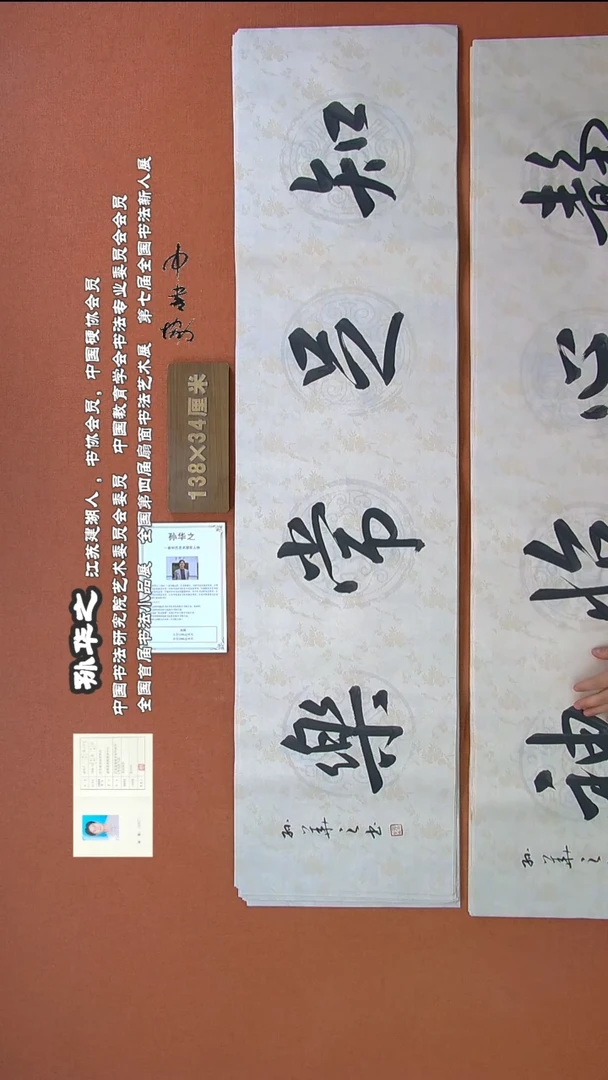 孙华之 江苏建湖人，书协会员，中国硬协会员
中国书法研究院艺术委员会委员 中国教育学会书法专业委员会会员
全国首届书法小品展 全国第四届扇面书法艺术展 第七届全国书法新人展
孙华之
138×34厘米
知足常樂
孙華之书
静心怡神
孙華之